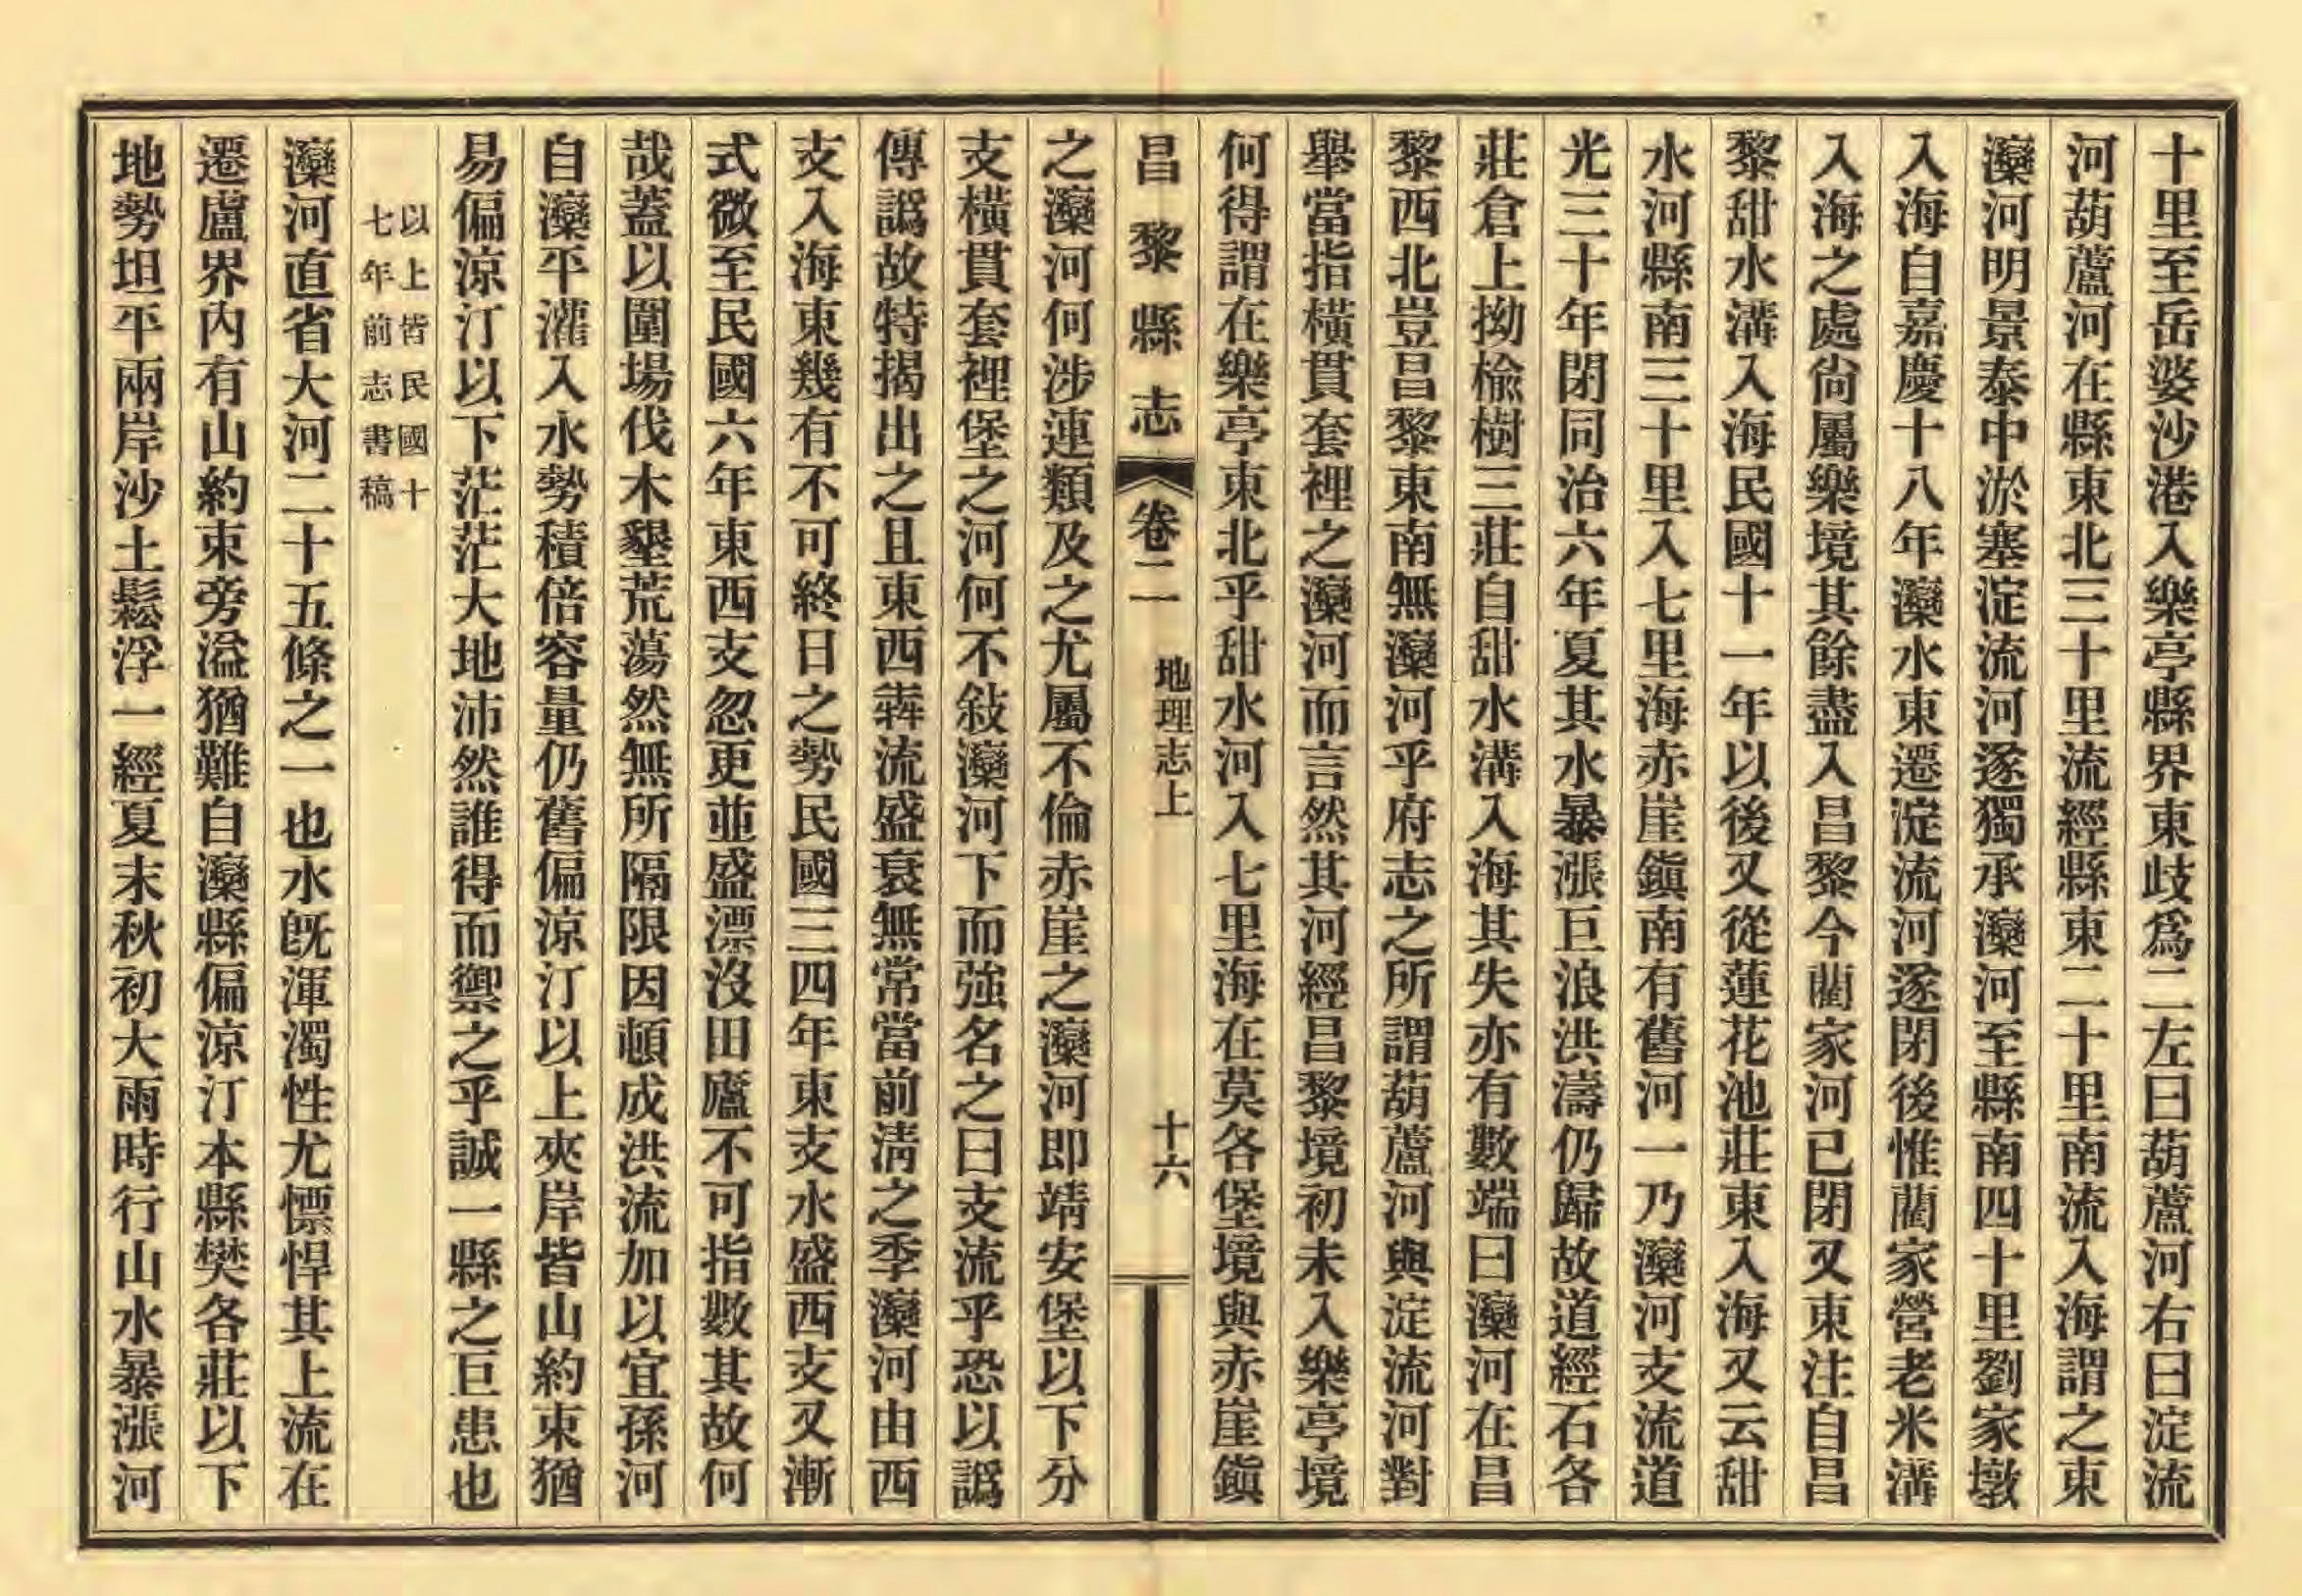 十里至岳婆沙港入樂亭縣界東歧爲二左曰葫蘆河右曰淀流
河葫蘆河在縣東北三十里流經縣東二十里南流入海謂之東
灤河明景泰中淤塞淀流河遂獨承灤河至縣南四十里劉家墩
入海自嘉慶十八年灤水東遷淀流河遂閉後惟藺家營老米溝
入海之處尙屬樂境其餘盡入昌黎今藺家河已閉又東注自昌
黎甜水溝入海民國十一年以後又從蓮花池莊東入海又云甜
水河縣南三十里入七里海赤崖鎭南有舊河一乃灤河支流道
光三十年閉同治六年夏其水暴漲巨浪洪濤仍歸故道經石各
莊倉上拗楡樹三莊自甜水溝入海其失亦有數端曰灤河在昌
黎西北豈昌黎東南無灤河乎府志之所謂葫蘆河與淀流河對
舉當指橫貫套裡之灤河而言然其河經昌黎境初未入樂亭境
何得謂在樂亭東北乎甜水河入七里海在莫各堡境與赤崖鎭
昌黎縣志 卷二 地理志上 十六
之灤河何涉連類及之尤屬不倫赤崖之灤河即靖安堡以下分
支橫貫套裡堡之河何不敍灤河下而強名之曰支流乎恐以譌
傳譌故特揭出之且東西犇流盛衰無常當前淸之季灤河由西
支入海東幾有不可終日之勢民國三四年東支水盛西支又漸
式微至民國六年東西支忽更並盛漂沒田廬不可指數其故何
哉蓋以圍場伐木墾荒蕩然無所隔限因頓成洪流加以宜孫河
自灤平灌入水勢積倍容量仍舊偏涼汀以上夾岸皆山約束猶
易偏涼汀以下茫茫大地沛然誰得而禦之乎誠一縣之巨患也
以上皆民國十
七年前志書稿
灤河直省大河二十五條之一也水旣渾濁性尤慓悍其上流在
遷盧界內有山約束旁溢猶難自灤縣偏涼汀本縣樊各莊以下
地勢坦平兩岸沙土鬆浮一經夏末秋初大雨時行山水暴漲河